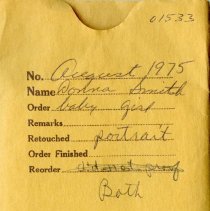 01533
No. August 1975
Name Donna Smith
Order baby girl
Remarks
Retouched portrait
Order Finished
Reorder did not proof
Both